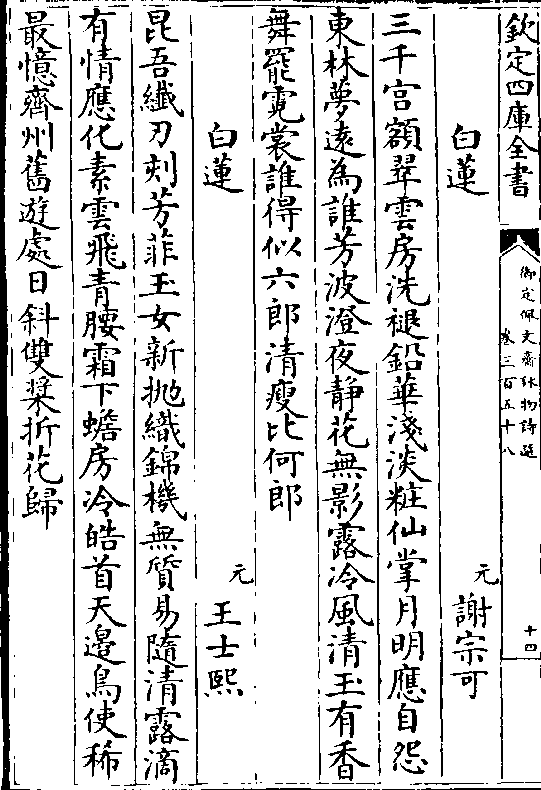 欽定四庫全書
御定佩文齋詠物詩選
卷三百五十八
十四
白蓮
元 謝宗可
三千宮額翠雲房洗褪鉛華淺淡粧仙掌月明應自怨
東林夢遠為誰芳波澄夜静花無影露冷風清玉有香
舞罷霓裳誰得似六郎清瘦比何郎
白蓮
元 王士熙
昆吾纖刃刻芳菲玉女新抛織錦機無質易隨清露滴
有情應化素雲飛青腰霜下蟾房冷皓首天邉鳥使稀
最憶齊州舊遊處日斜雙槳折花歸